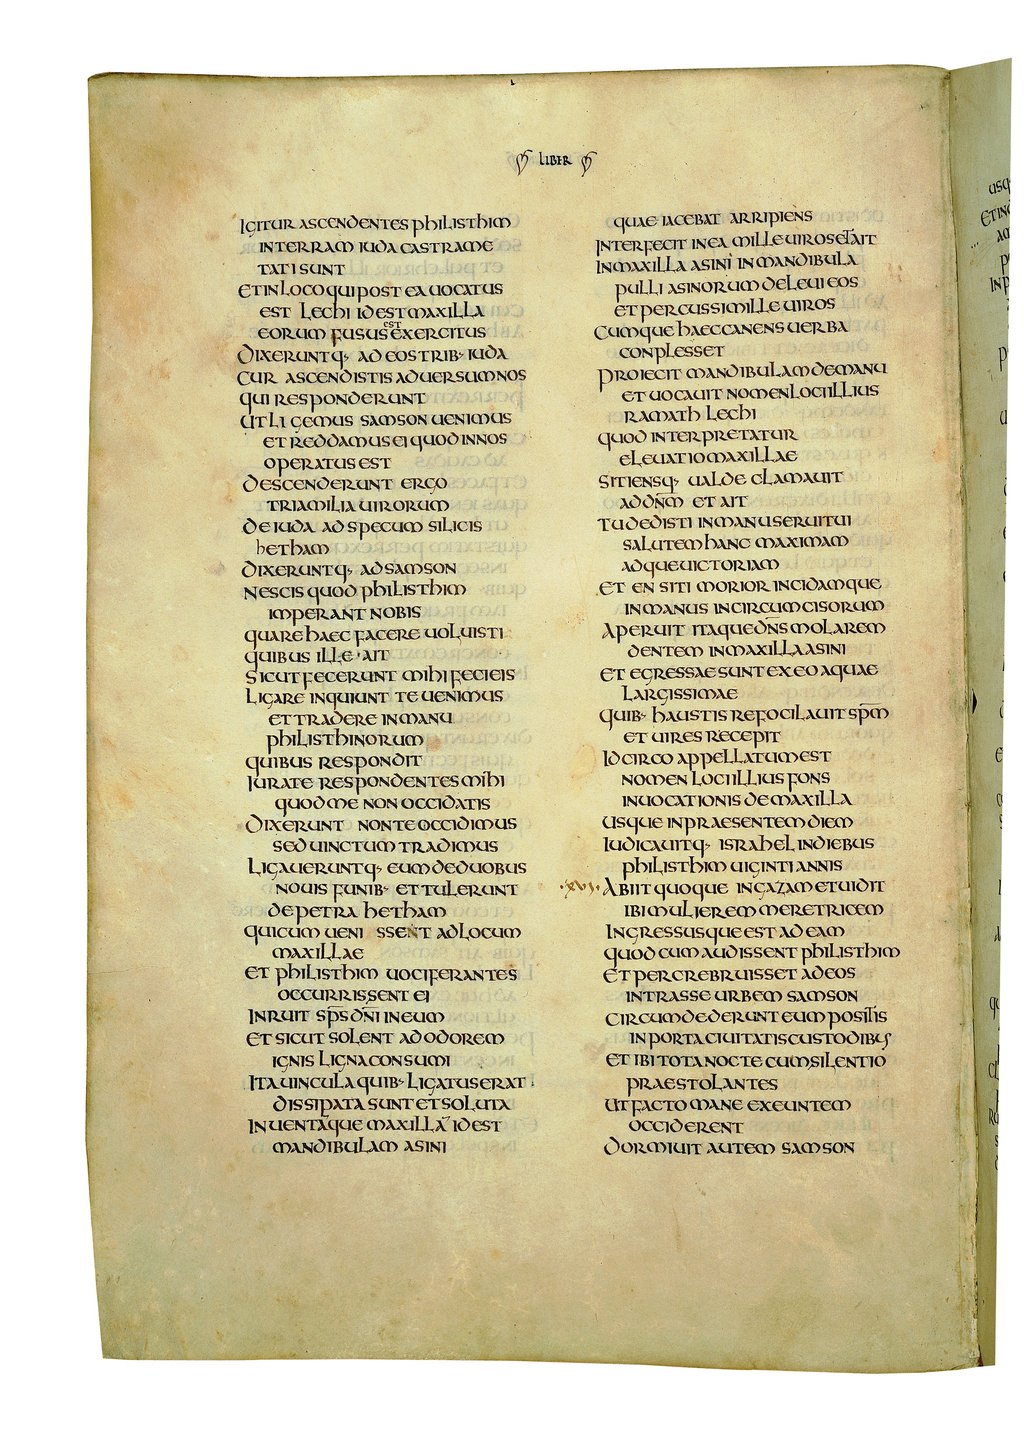 LIBER
IGITUR ASCENDENTES PHILISTHIM
IN TERRAM IUDA CASTRAME
TATI SUNT
ET IN LOCO QUI POST EA UOCATUS
EST LECHI ID EST MAXILLA
EORUM FUSUS EST EXERCITUS
DIXERUNTQ· AD EOS TRIB· IUDA
CUR ASCENDISTIS ADUERSUM NOS
QUI RESPONDERUNT
UT LIGEMUS SAMSON UENIMUS
ET REDDAMUS EI QUOD IN NOS
OPERATUS EST
DESCENDERUNT ERGO
TRIA MILIA UIRORUM
DE IUDA AD SPECUM SILICIS
HETHAM
DIXERUNTQ· AD SAMSON
NESCIS QUOD PHILISTHIM
IMPERANT NOBIS
QUARE HAEC FACERE UOLUISTI
QUIBUS ILLE · AIT
SICUT FECERUNT MIHI FECI EIS
LIGARE INQUIUNT TE UENIMUS
ET TRADERE IN MANU
PHILISTHINORUM
QUIBUS RESPONDIT
IURATE RESPONDENTES MIHI
QUOD ME NON OCCIDATIS
DIXERUNT NON TE OCCIDIMUS
SED UINCTUM TRADIMUS
LIGAUERUNTQ· EUM DE DUOBUS
NOUIS FUNIB· ET TULERUNT
DE PETRA HETHAM
QUI CUM UENI SSENT AD LOCUM
MAXILLAE
ET PHILISTHIM UOCIFERANTES
OCCURRISSENT EI
INRUIT SP̅S DN̅I IN EUM
ET SICUT SOLENT AD ODOREM
IGNIS LIGNA CONSUMI
ITA UINCULA QUIB· LIGATUS ERAT
DISSIPATA SUNT ET SOLUTA
INUENTAQUE MAXILLA ID EST
MANDIBULAM ASINI
QUAE IACEBAT ARRIPIENS
INTERFECIT IN EA MILLE UIROS ET AIT
IN MAXILLA ASINI IN MANDIBULA
PULLI ASINORUM DELEUI EOS
ET PERCUSSI MILLE UIROS
CUMQUE HAEC CANENS UERBA
CONPLESSET
PROIECIT MANDIBULAM DE MANU
ET UOCAUIT NOMEN LOCI ILLIUS
RAMATH LECHI
QUOD INTERPRETATUR
ELEUATIO MAXILLAE
SITIENSQ· UALDE CLAMAUIT
AD DN̅M ET AIT
TU DEDISTI IN MANU SERUI TUI
SALUTEM HANC MAXIMAM
ADQUE UICTORIAM
ET EN SITI MORIOR INCIDAMQUE
IN MANUS INCIRCUMCISORUM
APERUIT ITAQUE DN̅S MOLAREM
DENTEM IN MAXILLA ASINI
ET EGRESSAE SUNT EX EO AQUAE
LARGISSIMAE
QUIB· HAUSTIS REFOCILAUIT SP̅M
ET UIRES RECEPIT
IDCIRCO APPELLATUM EST
NOMEN LOCI ILLIUS FONS
INUOCATIONIS DE MAXILLA
USQUE IN PRAESENTEM DIEM
IUDICAUITQ· ISRAHEL IN DIEBUS
PHILISTHIM UIGINTI ANNIS
·XVI· ABIIT QUOQUE IN GAZAM ET UIDIT
IBI MULIEREM MERETRICEM
INGRESSUSQUE EST AD EAM
QUOD CUM AUDISSENT PHILISTHIM
ET PERCREBRUISSET AD EOS
INTRASSE URBEM SAMSON
CIRCUMDEDERUNT EUM POSITIS
IN PORTA CIUITATIS CUSTODIBUS
ET IBI TOTA NOCTE CUM SILENTIO
PRAESTOLANTES
UT FACTO MANE EXEUNTEM
OCCIDERENT
DORMIUIT AUTEM SAMSON